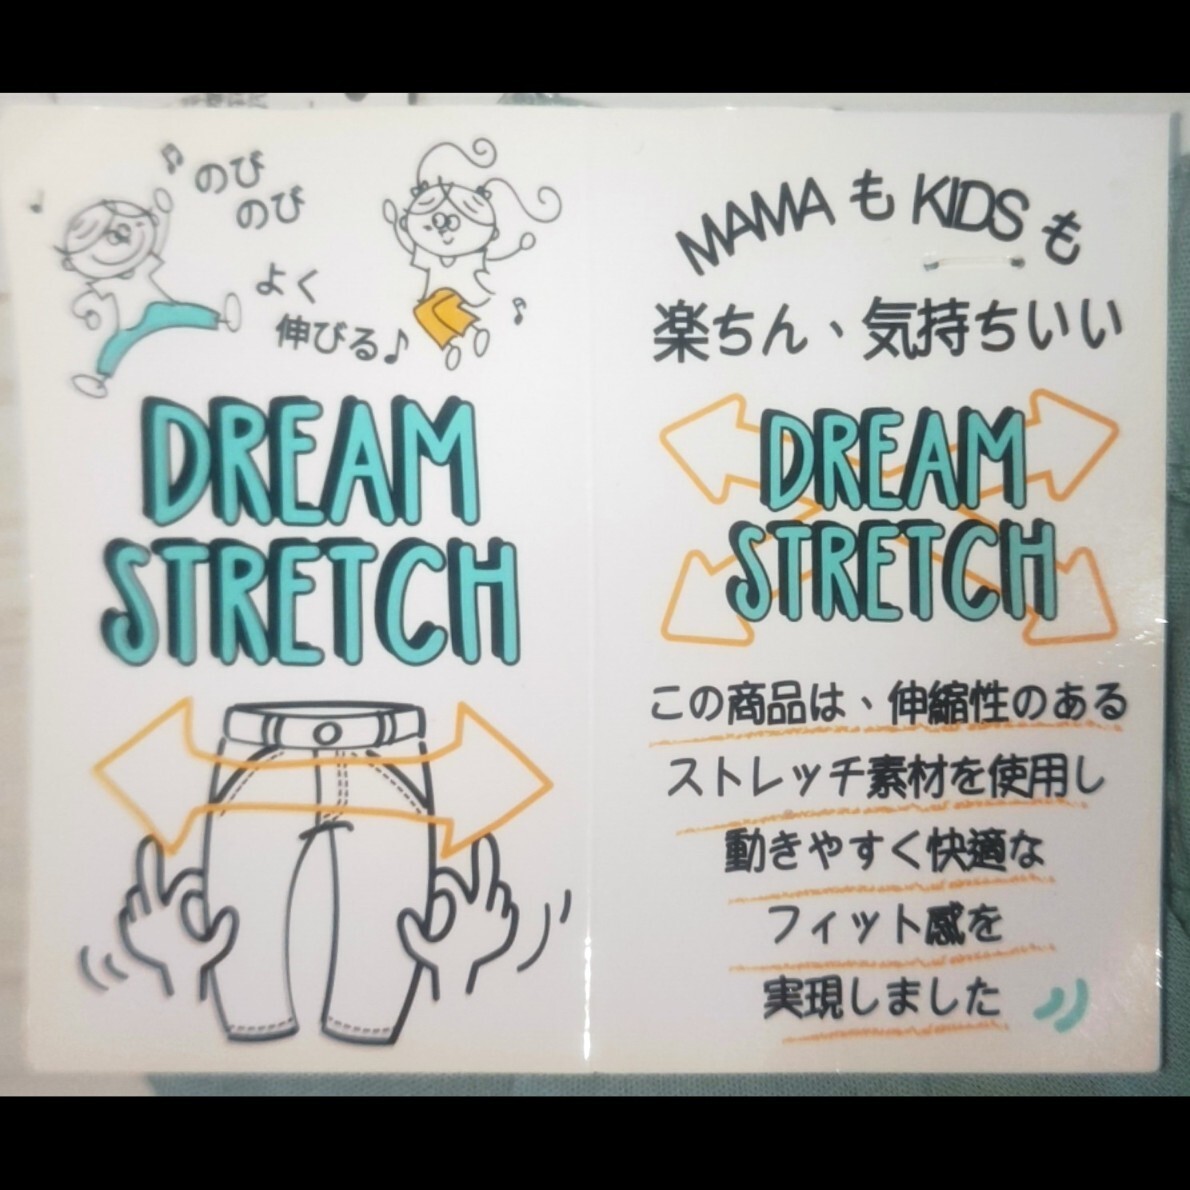 のび
のび
よく
伸びる♪
DREAM
STRETCH
MAMAもKIDSも
楽ちん、気持ちいい
DREAM
STRETCH
この商品は、伸縮性のある
ストレッチ素材を使用し
動きやすく快適な
フィット感を
実現しました